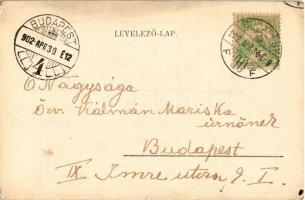 LEVELEZŐ-LAP.
BUDAPEST
902 APR 30 E12
4
Ő Nagysága
Özv. Kálmán Mariska
úrnőnek
Budapest
IX Imre utca 9. I.